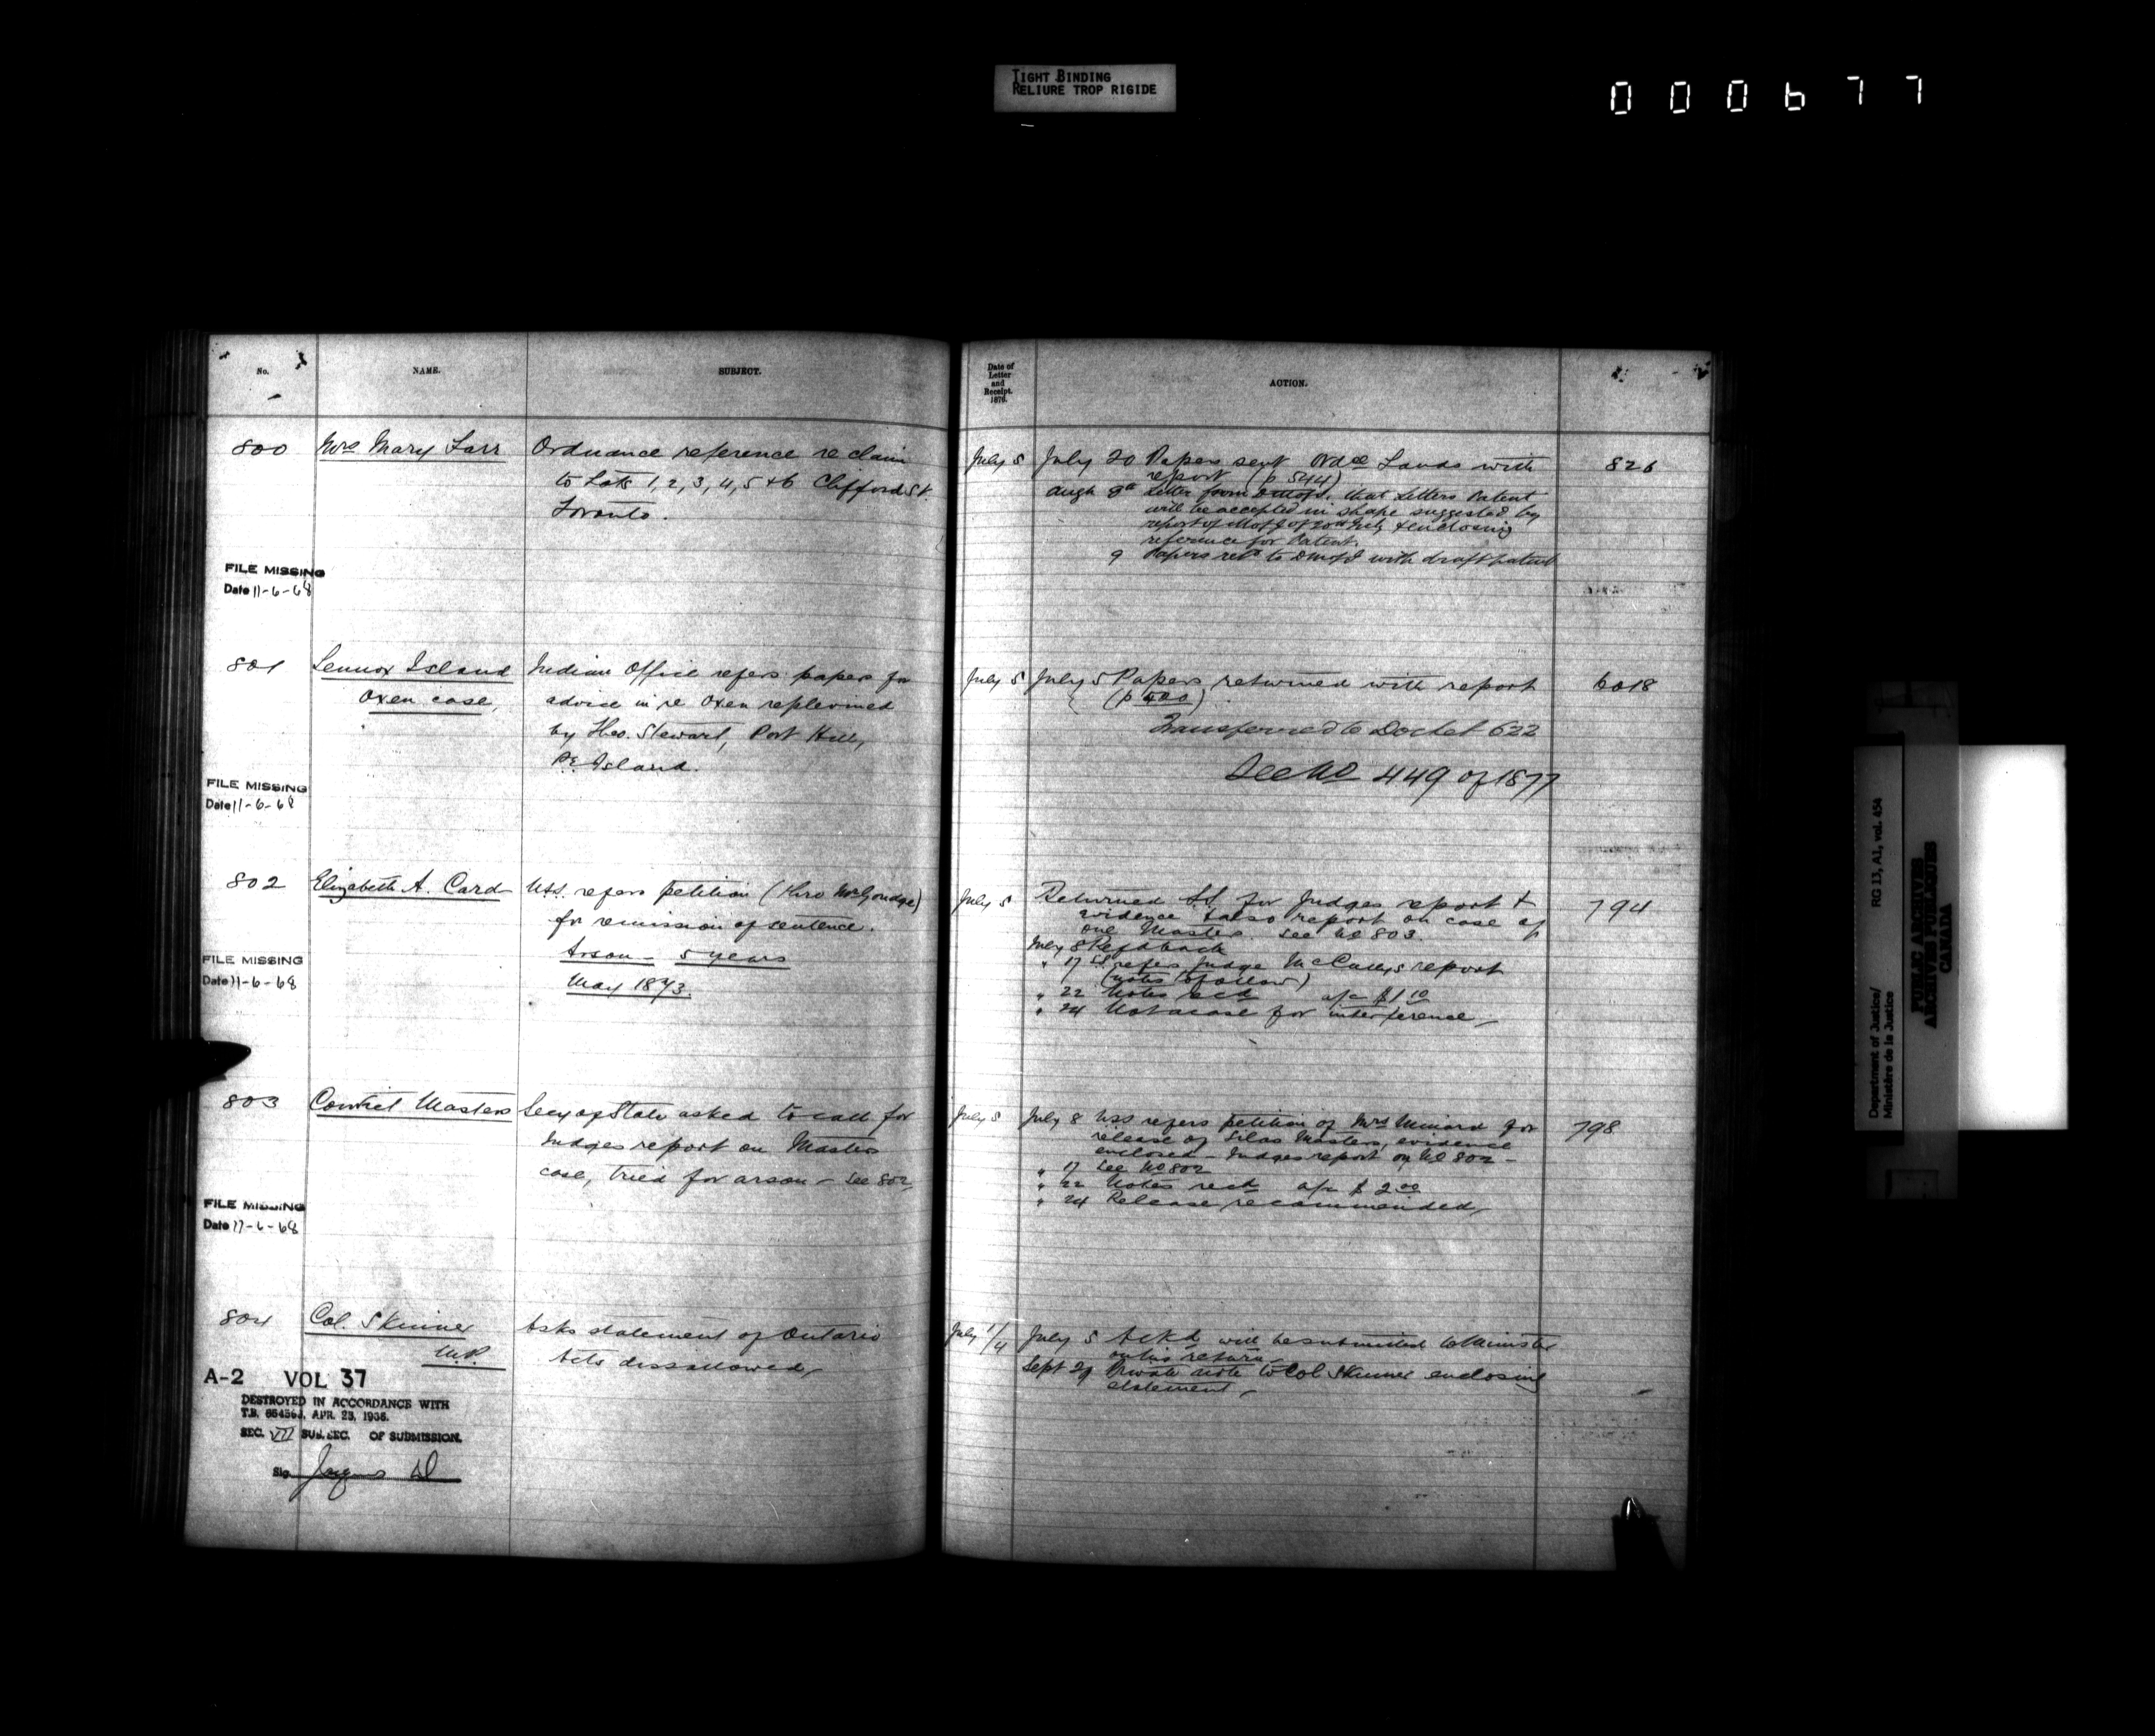 TIGHT BINDING
RELIURE TROP RIGIDE
000677
No.
NAME.
SUBJECT.
Date of
Letter
and
Receipt.
1876.
ACTION.
800
Mrs Mary Farr
Ordnance reference re claim
to Lots 1, 2, 3, 4, 5 & 6 Clifford St.
Toronto.
July 5
July 20 Papers sent Ordce Lands with
report (p 544)
Augt 9th Letter from DMofI. that Letters Patent
will be accepted in shape suggested by
report of MofJ of 20th July & enclosing
reference for Patent.
9 Papers retd to DMofI with draft patent
826
FILE MISSING
Date 11-6-68
801
Lennox Island
Oxen case,
Indian Office refers papers for
advice in re Oxen replevined
by Theo. Stewart, Port Hill,
P.E. Island.
July 5
July 5 Papers returned with report
(p 500)
Transferred to Docket 622
See No 449 of 1877
6018
FILE MISSING
Date 11-6-68
802
Elizabeth A. Card
USS. refers petition (thro Mr Goudge)
for remission of sentence.
Arson - 5 years
May 1873.
July 5
Returned SS for Judges report &
evidence & also report on case of
one Masters. See No 803.
July 8 Refd back
" 17 SS refers Judge McCully's report
(notes to follow)
" 22 Notes recd a/c $1.10
" 24 Not a case for interference
794
FILE MISSING
Date 11-6-68
803
Convict Masters
Secy of State asked to call for
Judges report on Masters
case, tried for arson - See 802
July 5
July 8 USS refers petition of Mrs Minard for
release of Silas Masters, evidence
enclosed - Judges report on No 802 -
" 17 See No 802
" 22 Notes recd a/c $2.00
" 24 Release recommended
798
FILE MISSING
Date 17-6-68
804
Col. Skinner
M.P.
Asks statement of Ontario
Acts dissallowed
July 1/4
July 5 Ackd will be submitted to Minister
on his return
Sept 29 Private note to Col Skinner enclosing
statement
A-2 VOL 37
DESTROYED IN ACCORDANCE WITH
T.B. APR. 23, 1936.
SEC. VII SUB. SEC. OF SUBMISSION.
Sig.
RG 13, A1, vol. 454
Department of Justice/
Ministère de la Justice
PUBLIC ARCHIVES
ARCHIVES PUBLIQUES
CANADA